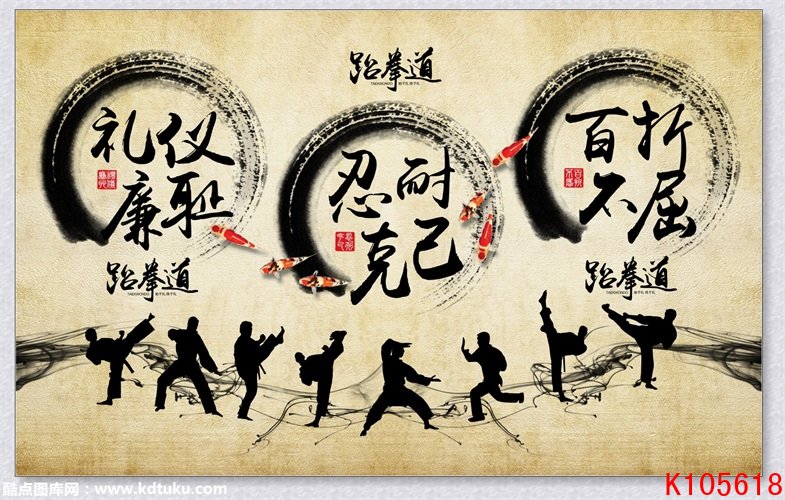 跆拳道
TAEKWONDO
礼仪
廉耻
忍耐
克己
百折
不屈
跆拳道
TAEKWONDO
跆拳道
TAEKWONDO
酷点图库网：www.kdtuku.com
K105618